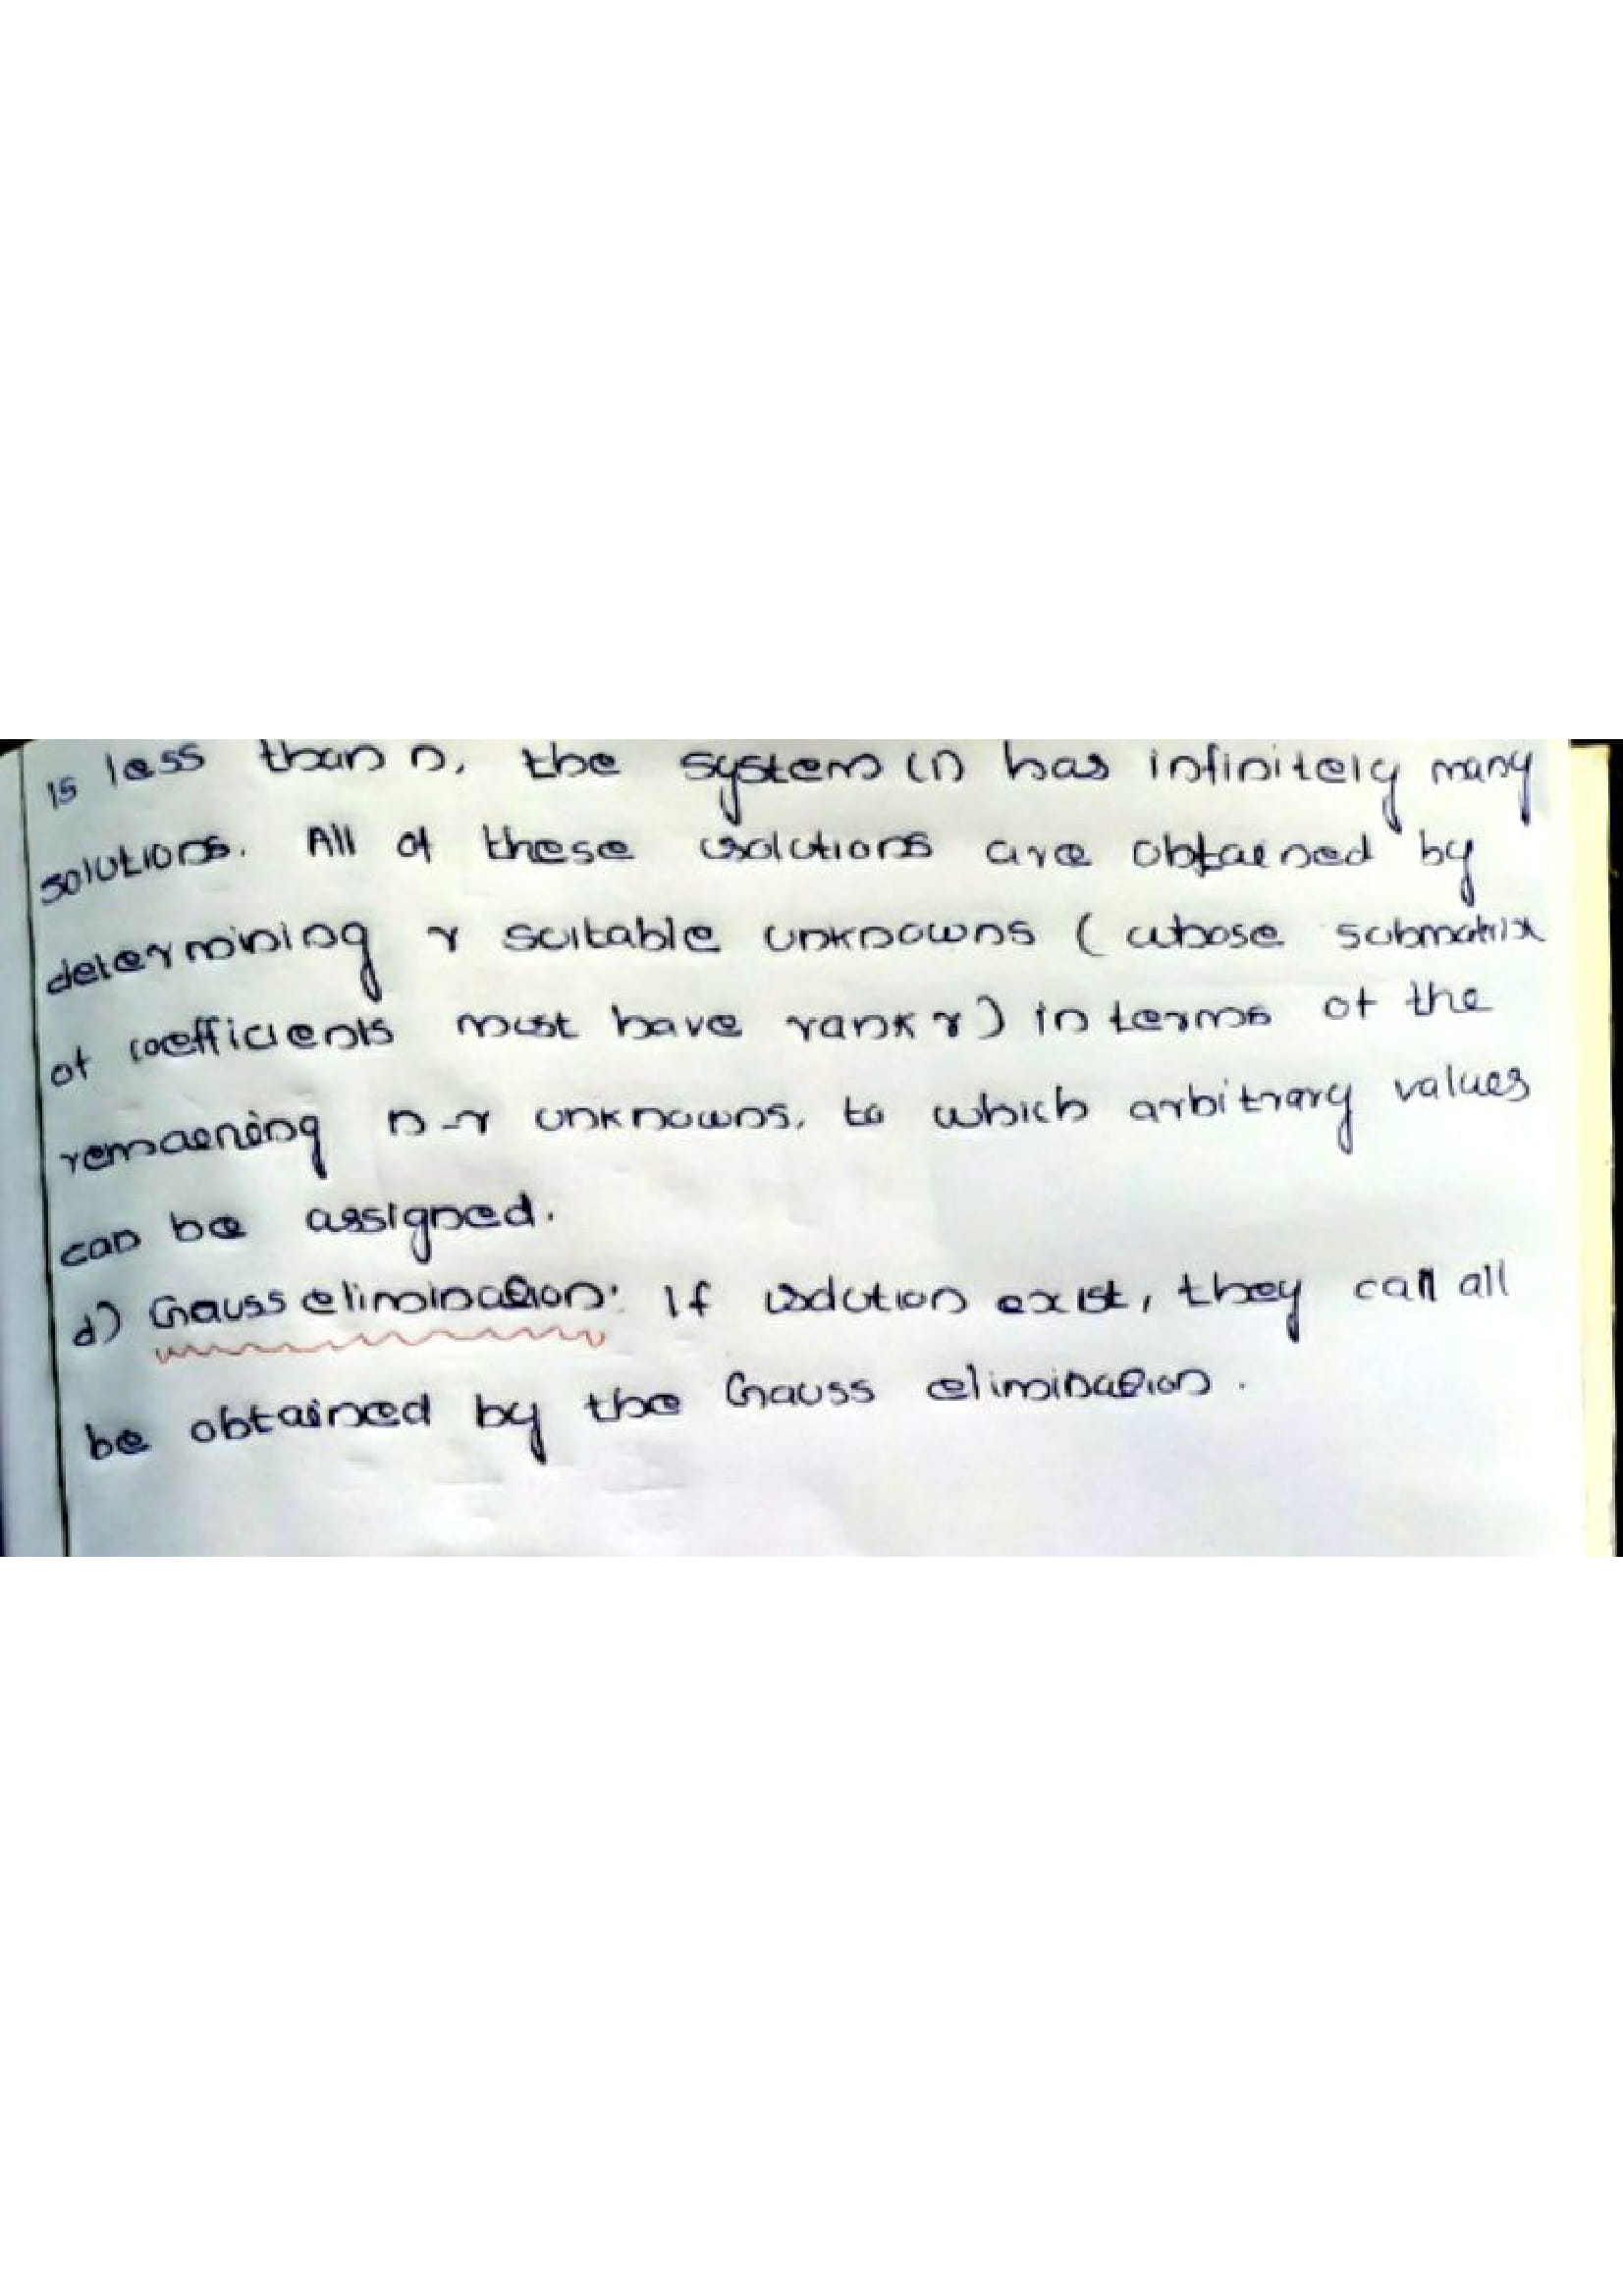 is less than n, the system (1) has infinitely many
solutions. All of these solutions are obtained by
determining r suitable unknowns (whose submatrix
of coefficients must have rank r) in terms of the
remaining n-r unknowns, to which arbitrary values
can be assigned.
d) Gauss elimination: If solution exist, they can all
be obtained by the Gauss elimination.